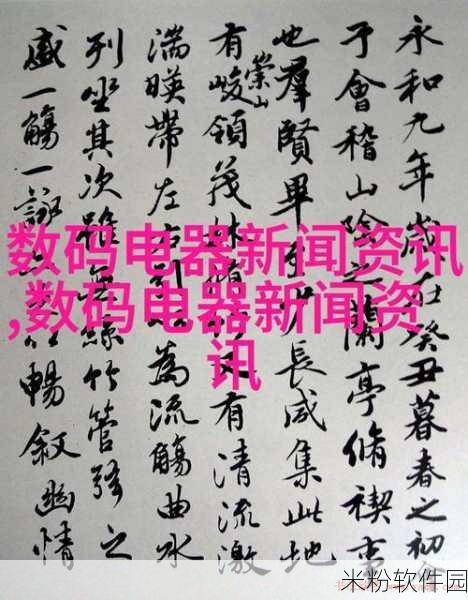 永和九年歲在癸丑暮春之初會
于會稽山陰之蘭亭脩禊事
也羣賢畢至少長咸集此地
有崇山峻領茂林有清流激
湍暎帶左右引為流觴曲水
列坐其次雖無絲竹管弦之
盛一觴一詠暢敘幽情
数码电器新闻资讯
,数码电器新闻资
讯
米粉软件园